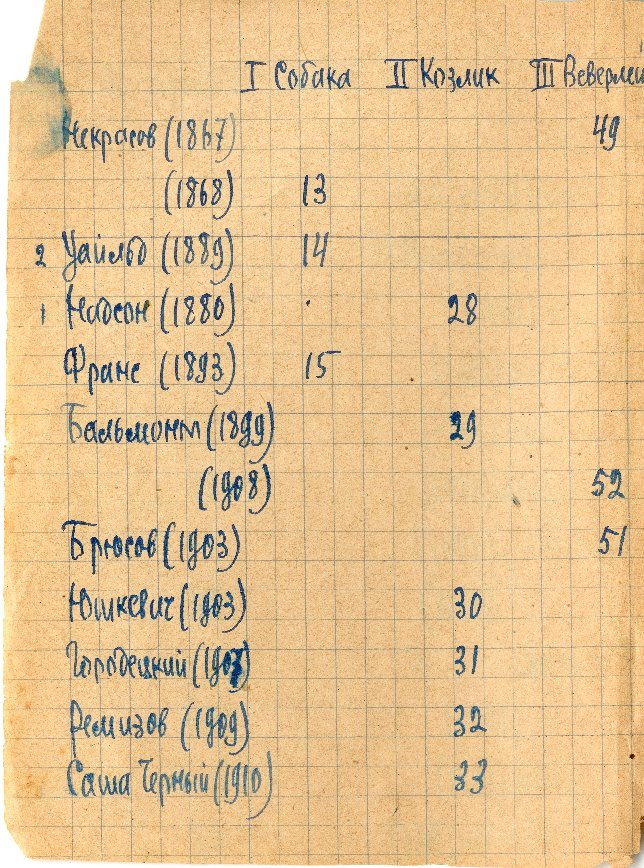 I Собака II Козлик III Веверлей
Некрасов (1867) 49
(1868) 13
2 Уайльд (1889) 14
1 Надсон (1880) 28
Франс (1893) 15
Бальмонт (1899) 29
(1908) 52
Брюсов (1903) 51
Юшкевич (1903) 30
Городецкий (1907) 31
Ремизов (1909) 32
Саша Черный (1910) 33